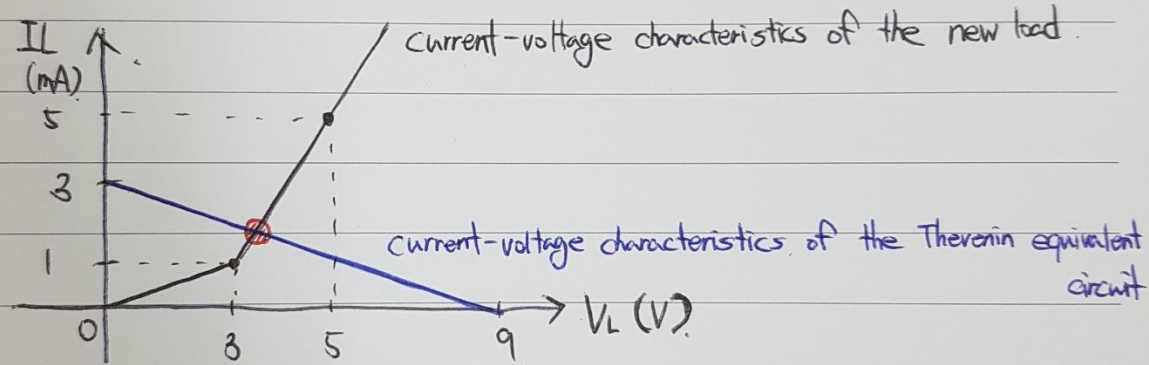 IL
(mA)
current-voltage characteristics of the new load.
5
3
current-voltage characteristics of the Thevenin equivalent
circuit
1
0
3
5
9
VL (V)